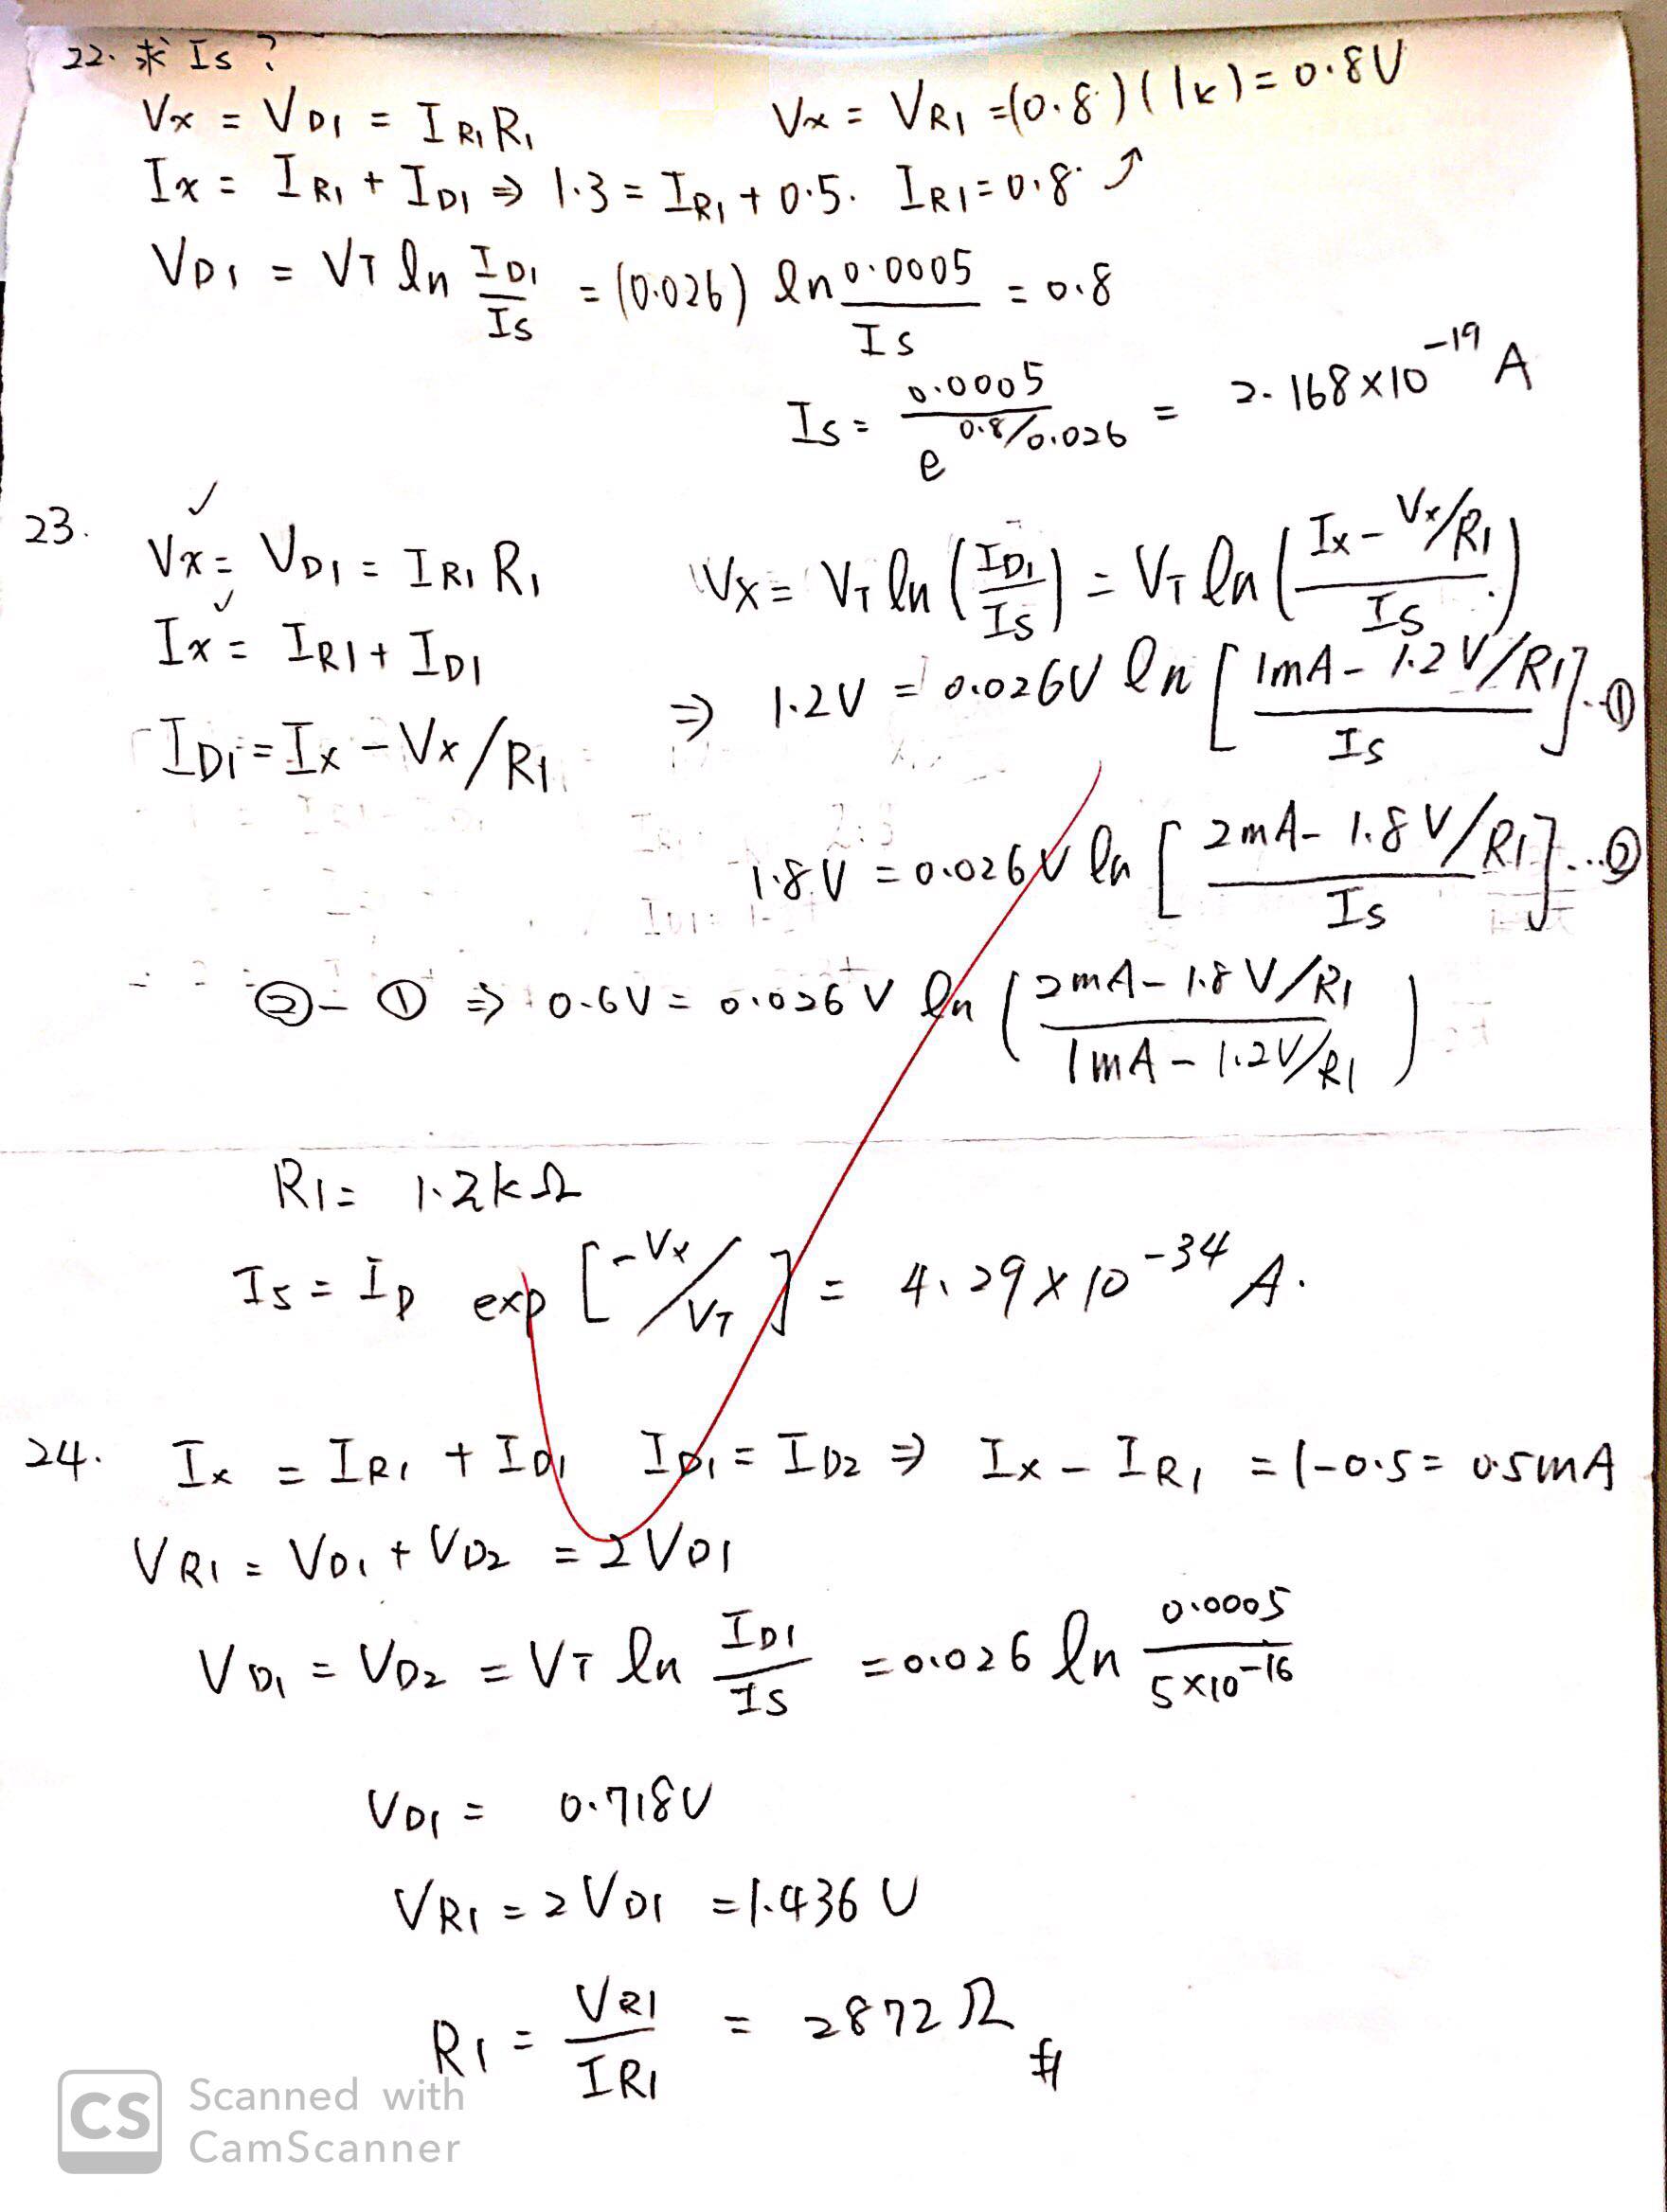 22. 求 Is ?
Vx = VD1 = IR1 R1   Vx = VR1 =(0.8)(1k)= 0.8V
Ix = IR1 + ID1 ⇒ 1.3 = IR1 + 0.5. IR1 = 0.8 ↑
VD1 = VT ln ID1/Is = (0.026) ln 0.0005/Is = 0.8
Is = 0.0005/e^0.8/0.026 = 2.168×10^-19 A
23. ✓
Vx = VD1 = IR1 R1   Vx = VT ln (ID1/Is) = VT ln (Ix - Vx/R1/Is)
✓
Ix = IR1 + ID1
⇒ 1.2V = 0.026V ln [1mA - 1.2V/R1/Is]...①
ID1 = Ix - Vx/R1
1.8V = 0.026V ln [2mA - 1.8V/R1/Is]...②
② - ① ⇒ 0.6V = 0.026V ln (2mA - 1.8V/R1/1mA - 1.2V/R1)
R1 = 1.2kΩ
Is = ID exp [-Vx/VT] = 4.29×10^-34 A.
24. Ix = IR1 + ID1   ID1 = ID2 ⇒ Ix - IR1 = 1-0.5 = 0.5mA
VR1 = VD1 + VD2 = 2VD1
VD1 = VD2 = VT ln ID1/Is = 0.026 ln 0.0005/5×10^-16
VD1 = 0.718V
VR1 = 2VD1 = 1.436V
R1 = VR1/IR1 = 2872Ω #
CS Scanned with
CamScanner